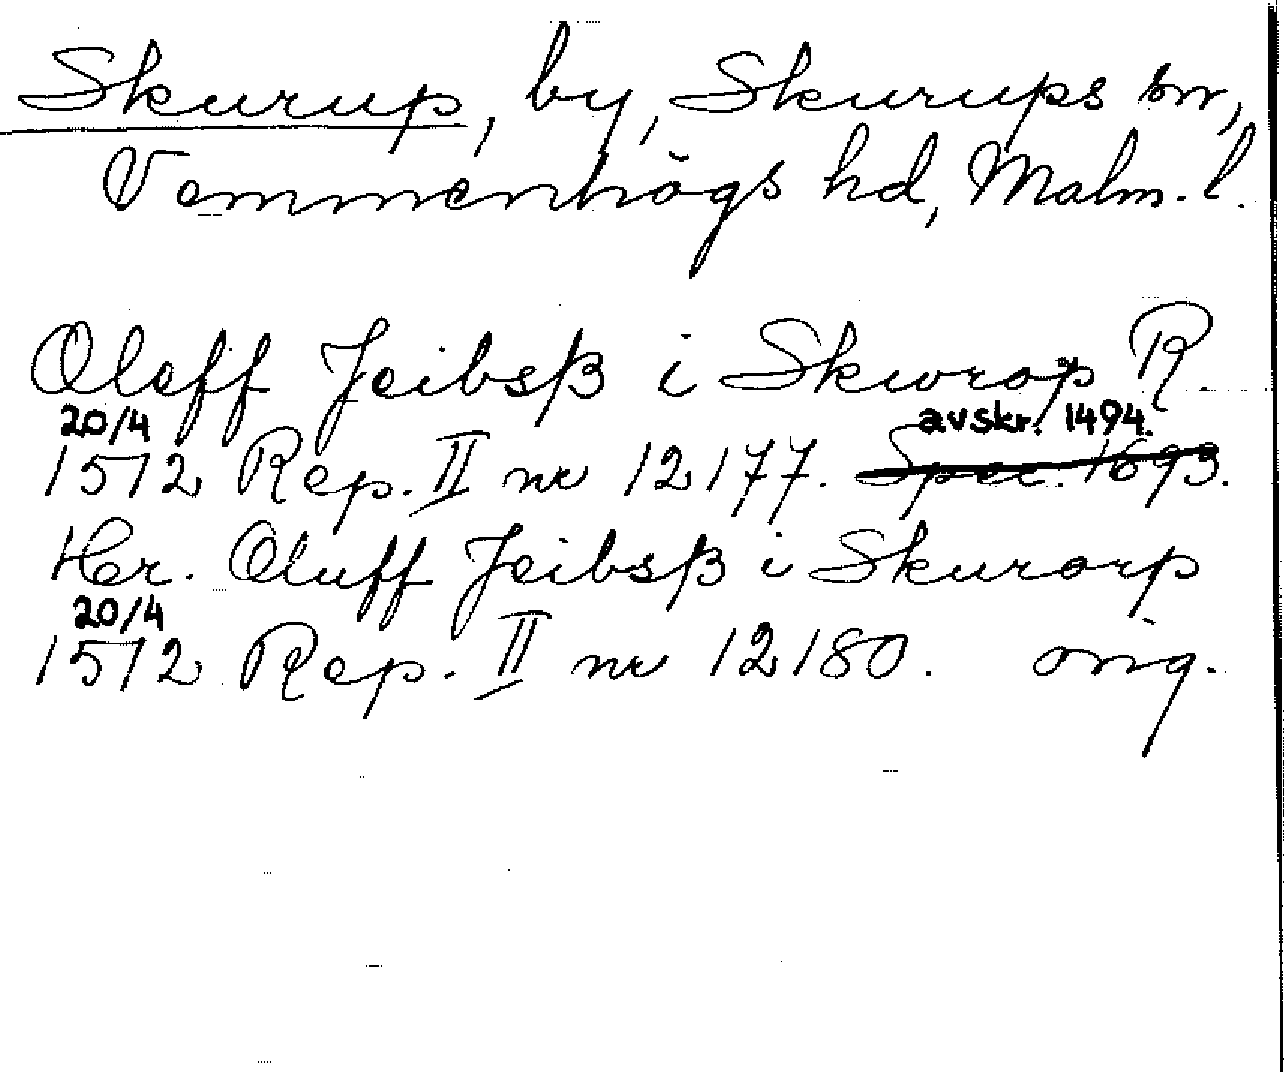 Skurup, by, Skurups sn,
Vemmenhögs hd, Malm. l.
Oleff Jeibsß i Skworop R.
20/4 avskr. 1494.
1572 Rep. II nr 12177. Spec. 1693.
Her. Oluff Jeibsß i Skurorp
20/4
1572 Rep. II nr 12180. orig.